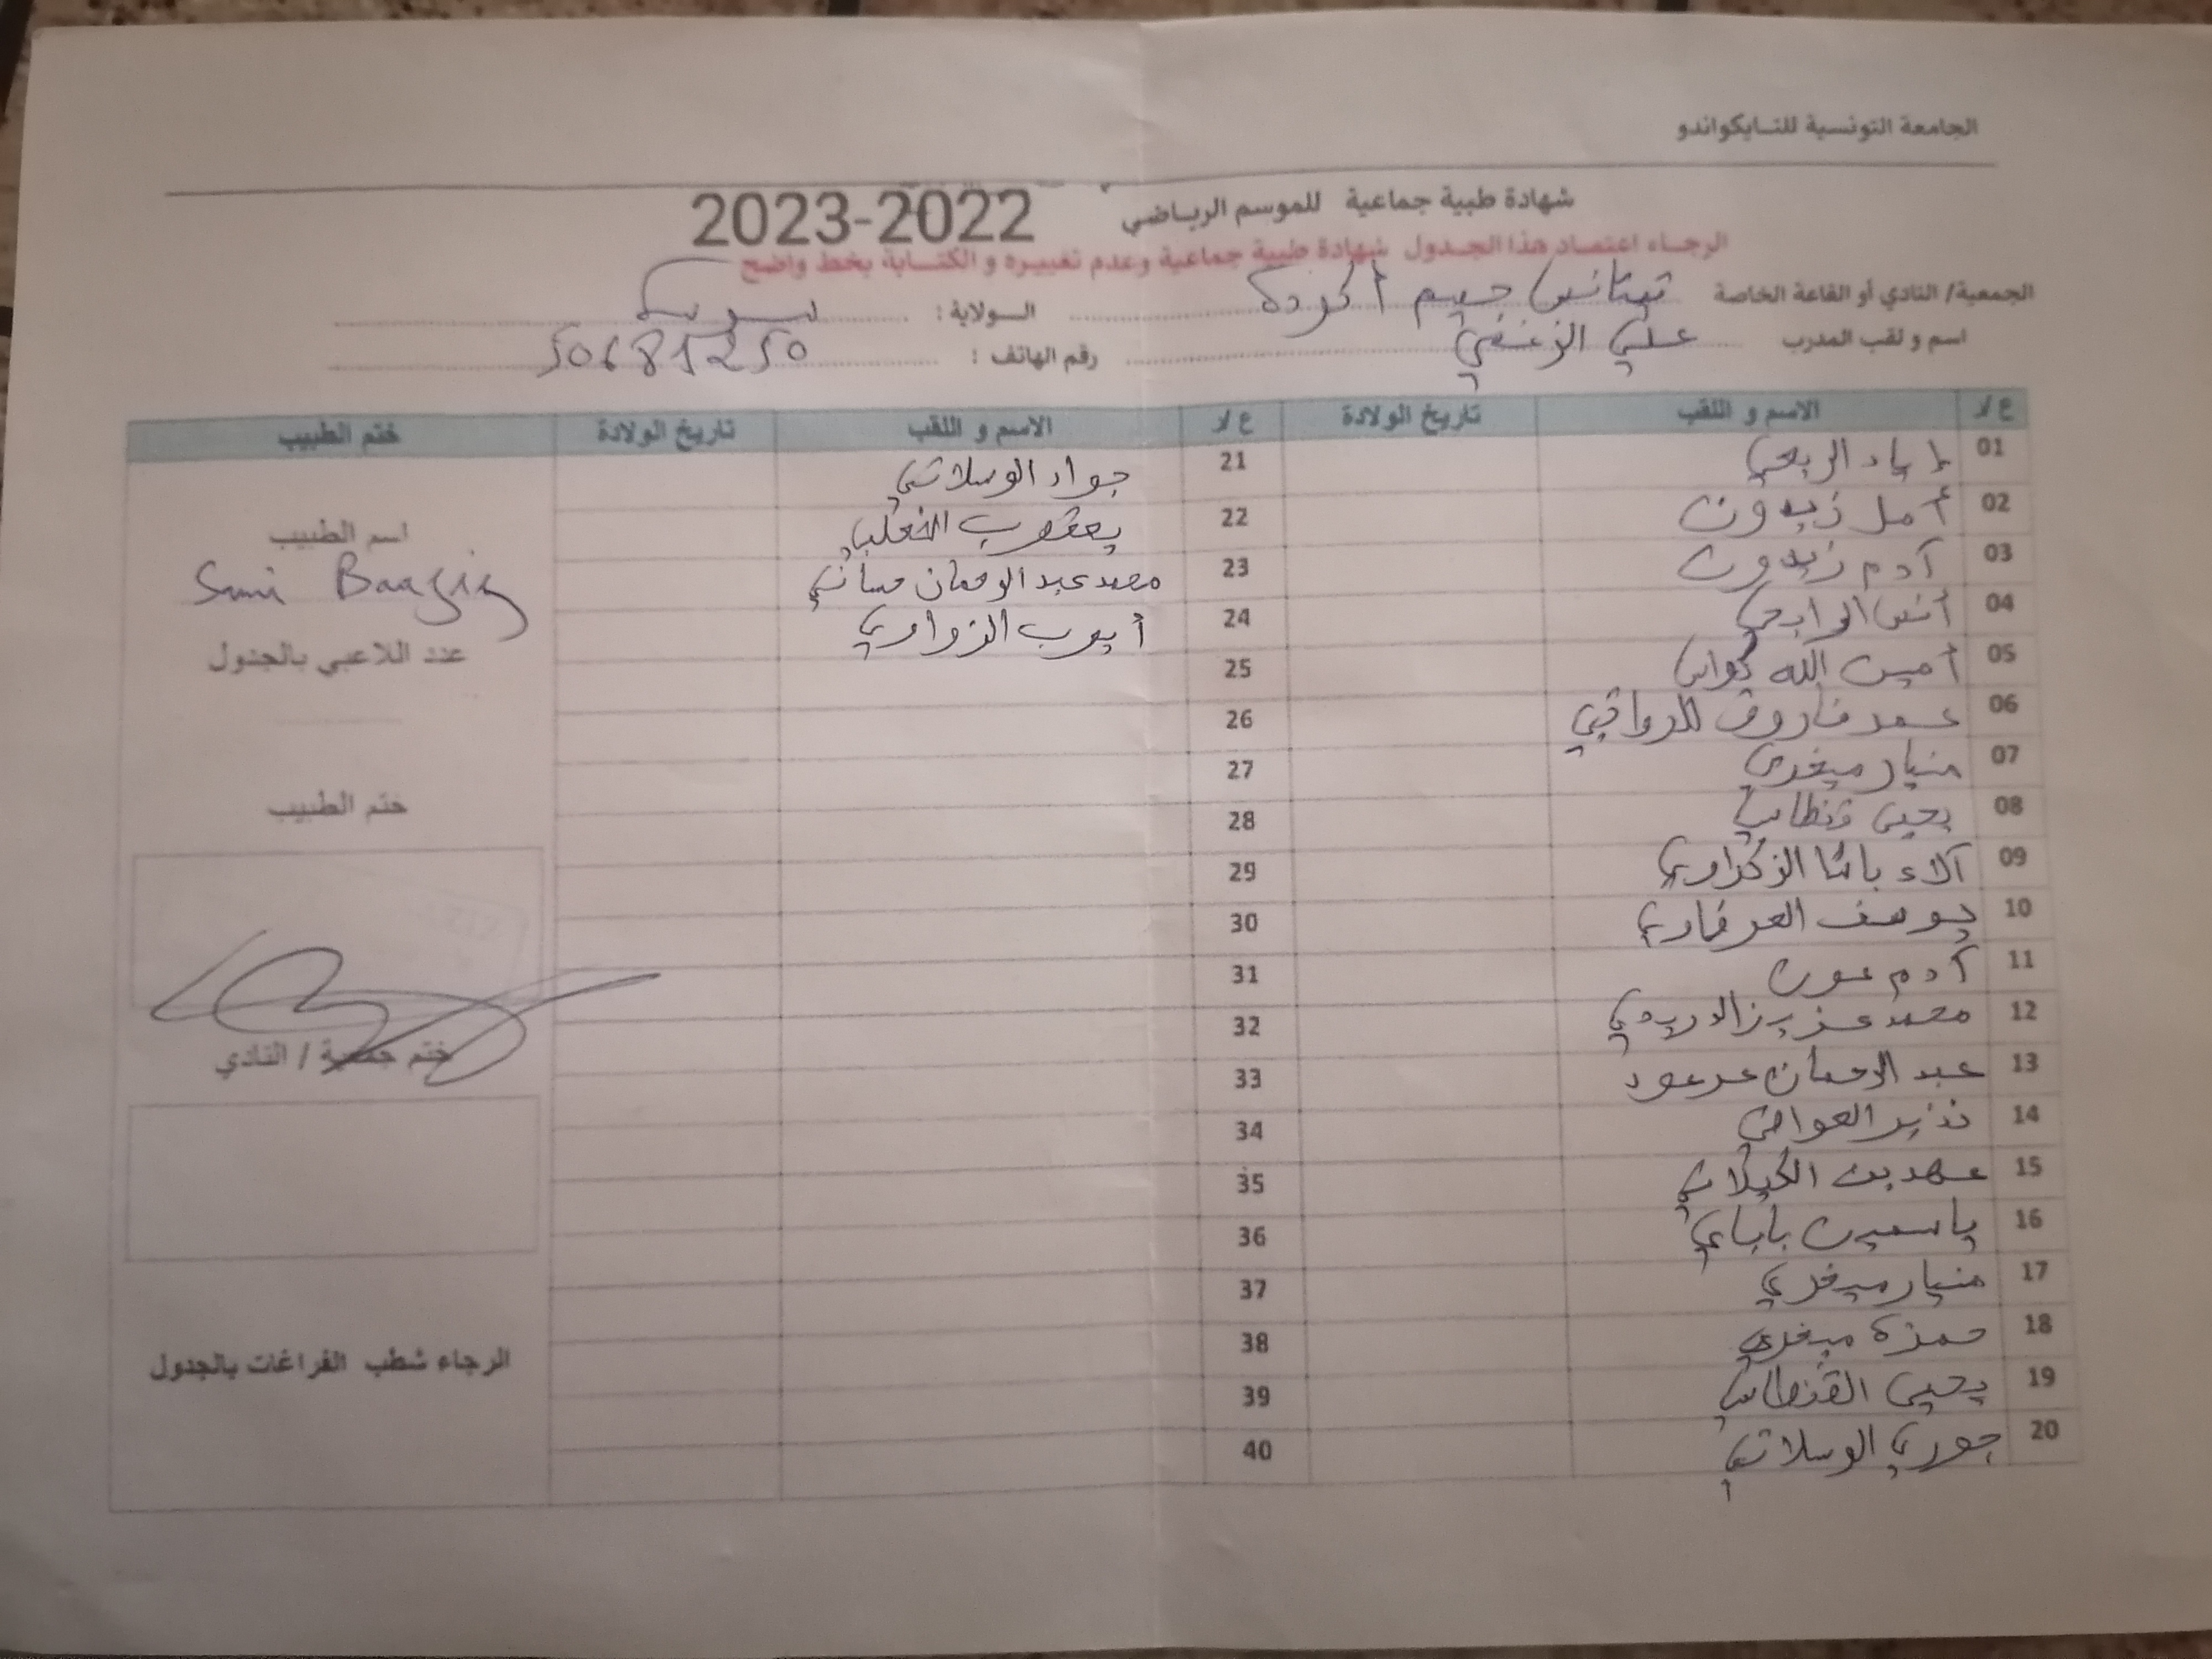 الجامعة التونسية للتايكواندو
شهادة طبية جماعية للموسم الرياضي 2022-2023
الرجاء اعتماد هذا الجدول شهادة طبية جماعية وعدم تغييره و الكتابة بخط واضح
الجمعية/ النادي أو القاعة الخاصة تيتانس جيم أكودة الولاية : سوسة
اسم و لقب المدرب علي الزغنفي رقم الهاتف : 50681250
ع/د الاسم و اللقب تاريخ الولادة ع/د الاسم و اللقب تاريخ الولادة ختم الطبيب
01 إياد الربعي
02 أمل زيدون
03 آدم زيدون
04 أنس الرابحي
05 أمين الله
06 فاروق
07 منيار ميغري
08 يحيى قنطاسي
09 آلاء باشا الزكراوي
10 يوسف
11 آدم عون
12 محمد عزيز الدريدي
13 عبد الرحمان
14 نذير
15 عهد بن الكيلاني
16 ياسمين باباي
17 منيار ميغري
18 حمزة ميغري
19 يحيى القنطاسي
20 جوري الوسلاتي
21 جواد الوسلاتي
22 يعقوب
23 محمد عبد الرحمان
24 أيوب الزواري
25
26
27
28
29
30
31
32
33
34
35
36
37
38
39
40
اسم الطبيب
عدد اللاعبي بالجدول
ختم الطبيب
ختم جمعية / النادي
الرجاء شطب الفراغات بالجدول